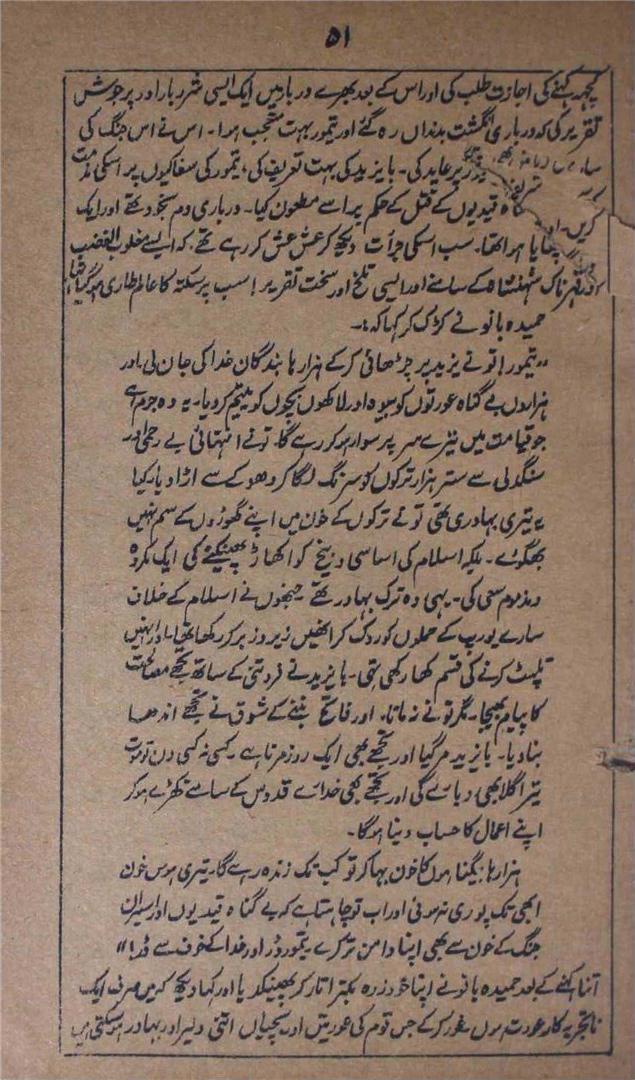 ۵۱
کچھ کہنے کی اجازت طلب کی اور اس کے بعد بھرے دربار میں ایک ایسی شرربار اور پرجوش
تقریر کی کہ درباری انگشت بدنداں رہ گئے اور تیمور بہت متعجب ہوا۔ اس نے اس جنگ کی
پر عاید کی۔ بایزید کی بہت تعریف کی، تیمور کی سفاکیوں پر اسکی مذمت
قیدیوں کے قتل کے حکم پر اسے مطعون کیا۔ درباری دم بخود تھے اور ایک
چھایا ہوا تھا۔ سب اسکی جرأت دیکھ کر عش عش کر رہے تھے کہ ایسے مغلوب الغضب
اور قہرناک شہنشاہ کے سامنے اور ایسی تلخ اور سخت تقریر! سب پر سکتہ کا عالم طاری ہو گیا تھا
حمیدہ بانو نے کڑک کر کہا کہ:۔
"تیمور! تو نے یزید پر چڑھائی کر کے ہزارہا بندگان خدا کی جان لی۔ اور
ہزاروں بے گناہ عورتوں کو بیوہ اور لاکھوں بچوں کو یتیم کر دیا۔ یہ وہ جرم ہے
جو قیامت میں تیرے سر پر سوار ہو کر رہے گا۔ تونے انتہائی بے رحمی اور
سنگدلی سے ستر ہزار ترکوں کو سرنگ لگا کر دھوکے سے اڑا دیا۔ کیا
یہ تیری بہادری تھی تو نے ترکوں کے خون میں اپنے گھوڑوں کے سم نہیں
بھگوئے۔ بلکہ اسلام کی اساسی و بیخ کو اکھاڑ پھینکنے کی ایک مکروہ
و مذموم سعی کی۔ یہی وہ ترک بہادر تھے جنھوں نے اسلام کے خلاف
سارے یورپ کے حملوں کو روک کر انھیں زیر و زبر کر رکھا تھا۔ اور انہیں
تلپٹ کرنے کی قسم کھا رکھی تھی۔ بایزید نے فروتنی کے ساتھ تجھے مصالحت
کا پیام بھیجا۔ مگر تو نے نہ مانا، اور فاتح بننے کے شوق نے تجھے اندھا
بنا دیا۔ بایزید مر گیا اور تجھے بھی ایک روز مرنا ہے۔ کسی نہ کسی دن تو موت
تیرا گلا بھی دبائے گی اور تجھے بھی خدائے قدوس کے سامنے کھڑے ہو کر
اپنے اعمال کا حساب دینا ہوگا۔
ہزارہا بیگناہوں کا خون بہا کر تو کب تک زندہ رہے گا۔ تیری ہوس خون
ابھی تک پوری نہ ہوئی اور اب تو چاہتا ہے کہ بے گناہ قیدیوں اور اسیران
جنگ کے خون سے بھی اپنا دامن تر کرے۔ تیمور ڈر اور خدا کے خوف سے ڈر!"
اتنا کہنے کے بعد حمیدہ بانو نے اپنا خود زرہ بکتر اتار کر پھینکدیا اور کہا دیکھ کہ میں صرف ایک
ناتجربہ کار عورت ہوں۔ غور کر کے جس قوم کی عورتیں اور بچیاں اتنی دلیر اور بہادر ہو سکتی ہیں